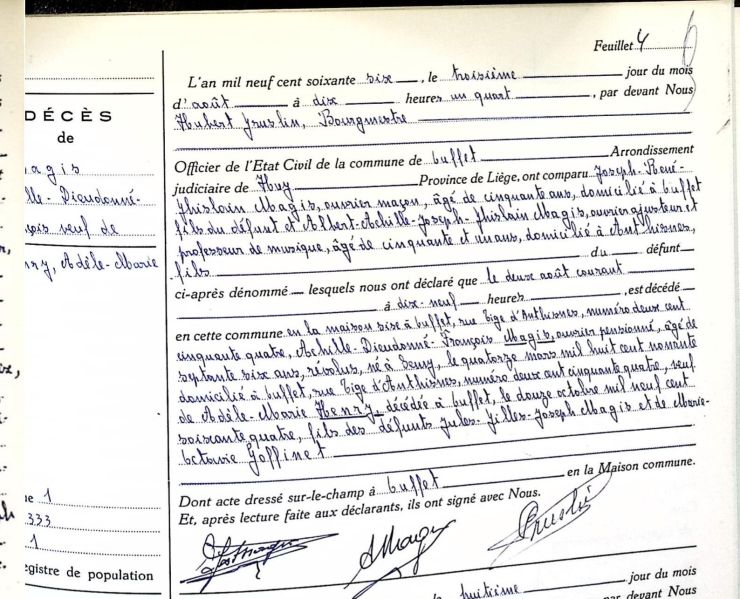 Feuillet 4
L'an mil neuf cent soixante six, le troisième jour du mois
d'août à dix heures un quart, par devant Nous
Hubert, Bourgmestre
Officier de l'Etat Civil de la commune de Buffet Arrondissement
judiciaire de Huy Province de Liège, ont comparu Joseph-René-
Ghislain Magis, ouvrier maçon, âgé de cinquante ans, domicilié à Buffet
fils du défunt et Albert-Achille-Joseph-Ghislain Magis, ouvrier ajusteur et
professeur de musique, âgé de cinquante et un ans, domicilié à Anthisnes,
fils du défunt
ci-après dénommé lesquels nous ont déclaré que le deux août courant
à dix-neuf heures, est décédé
en cette commune en la maison sise à Buffet, rue Tige d'Anthisnes, numéro deux cent
cinquante quatre, Achille-Dieudonné-François Magis, ouvrier pensionné, âgé de
septante six ans, révolus, né à Seny, le quatorze mars mil huit cent nonante
domicilié à Buffet, rue Tige d'Anthisnes, numéro deux cent cinquante quatre, veuf
de Adèle-Marie Henry, décédée à Buffet, le douze octobre mil neuf cent
soixante quatre, fils des défunts Jules-Gilles-Joseph Magis et de Marie-
Octavie Goffinet
Dont acte dressé sur-le-champ à Buffet en la Maison commune.
Et, après lecture faite aux déclarants, ils ont signé avec Nous.
huitième jour du mois
par devant Nous
DÉCÈS
de
agis
lle-Dieudonné-
çois veuf de
enry, Adèle-Marie
e 1
333
1
egistre de population